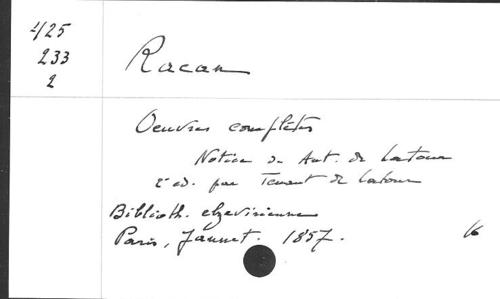 4/25
233
2
Racan
Oeuvres complètes
Notice de Ant. de Latour
2e éd. par Tenant de Latour
Biblioth. elzevirienne
Paris, Jannet. 1857.
16